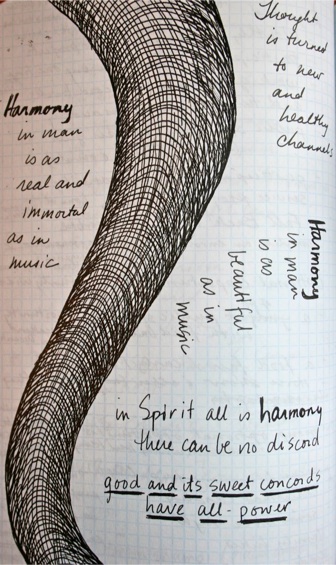 Thought
is turned
to new
and
healthy
channels
Harmony
in man
is as
real and
immortal
as in
music
Harmony
in man
is as
beautiful
as in
music
in Spirit all is harmony
there can be no discord
good and its sweet concords
have all-power